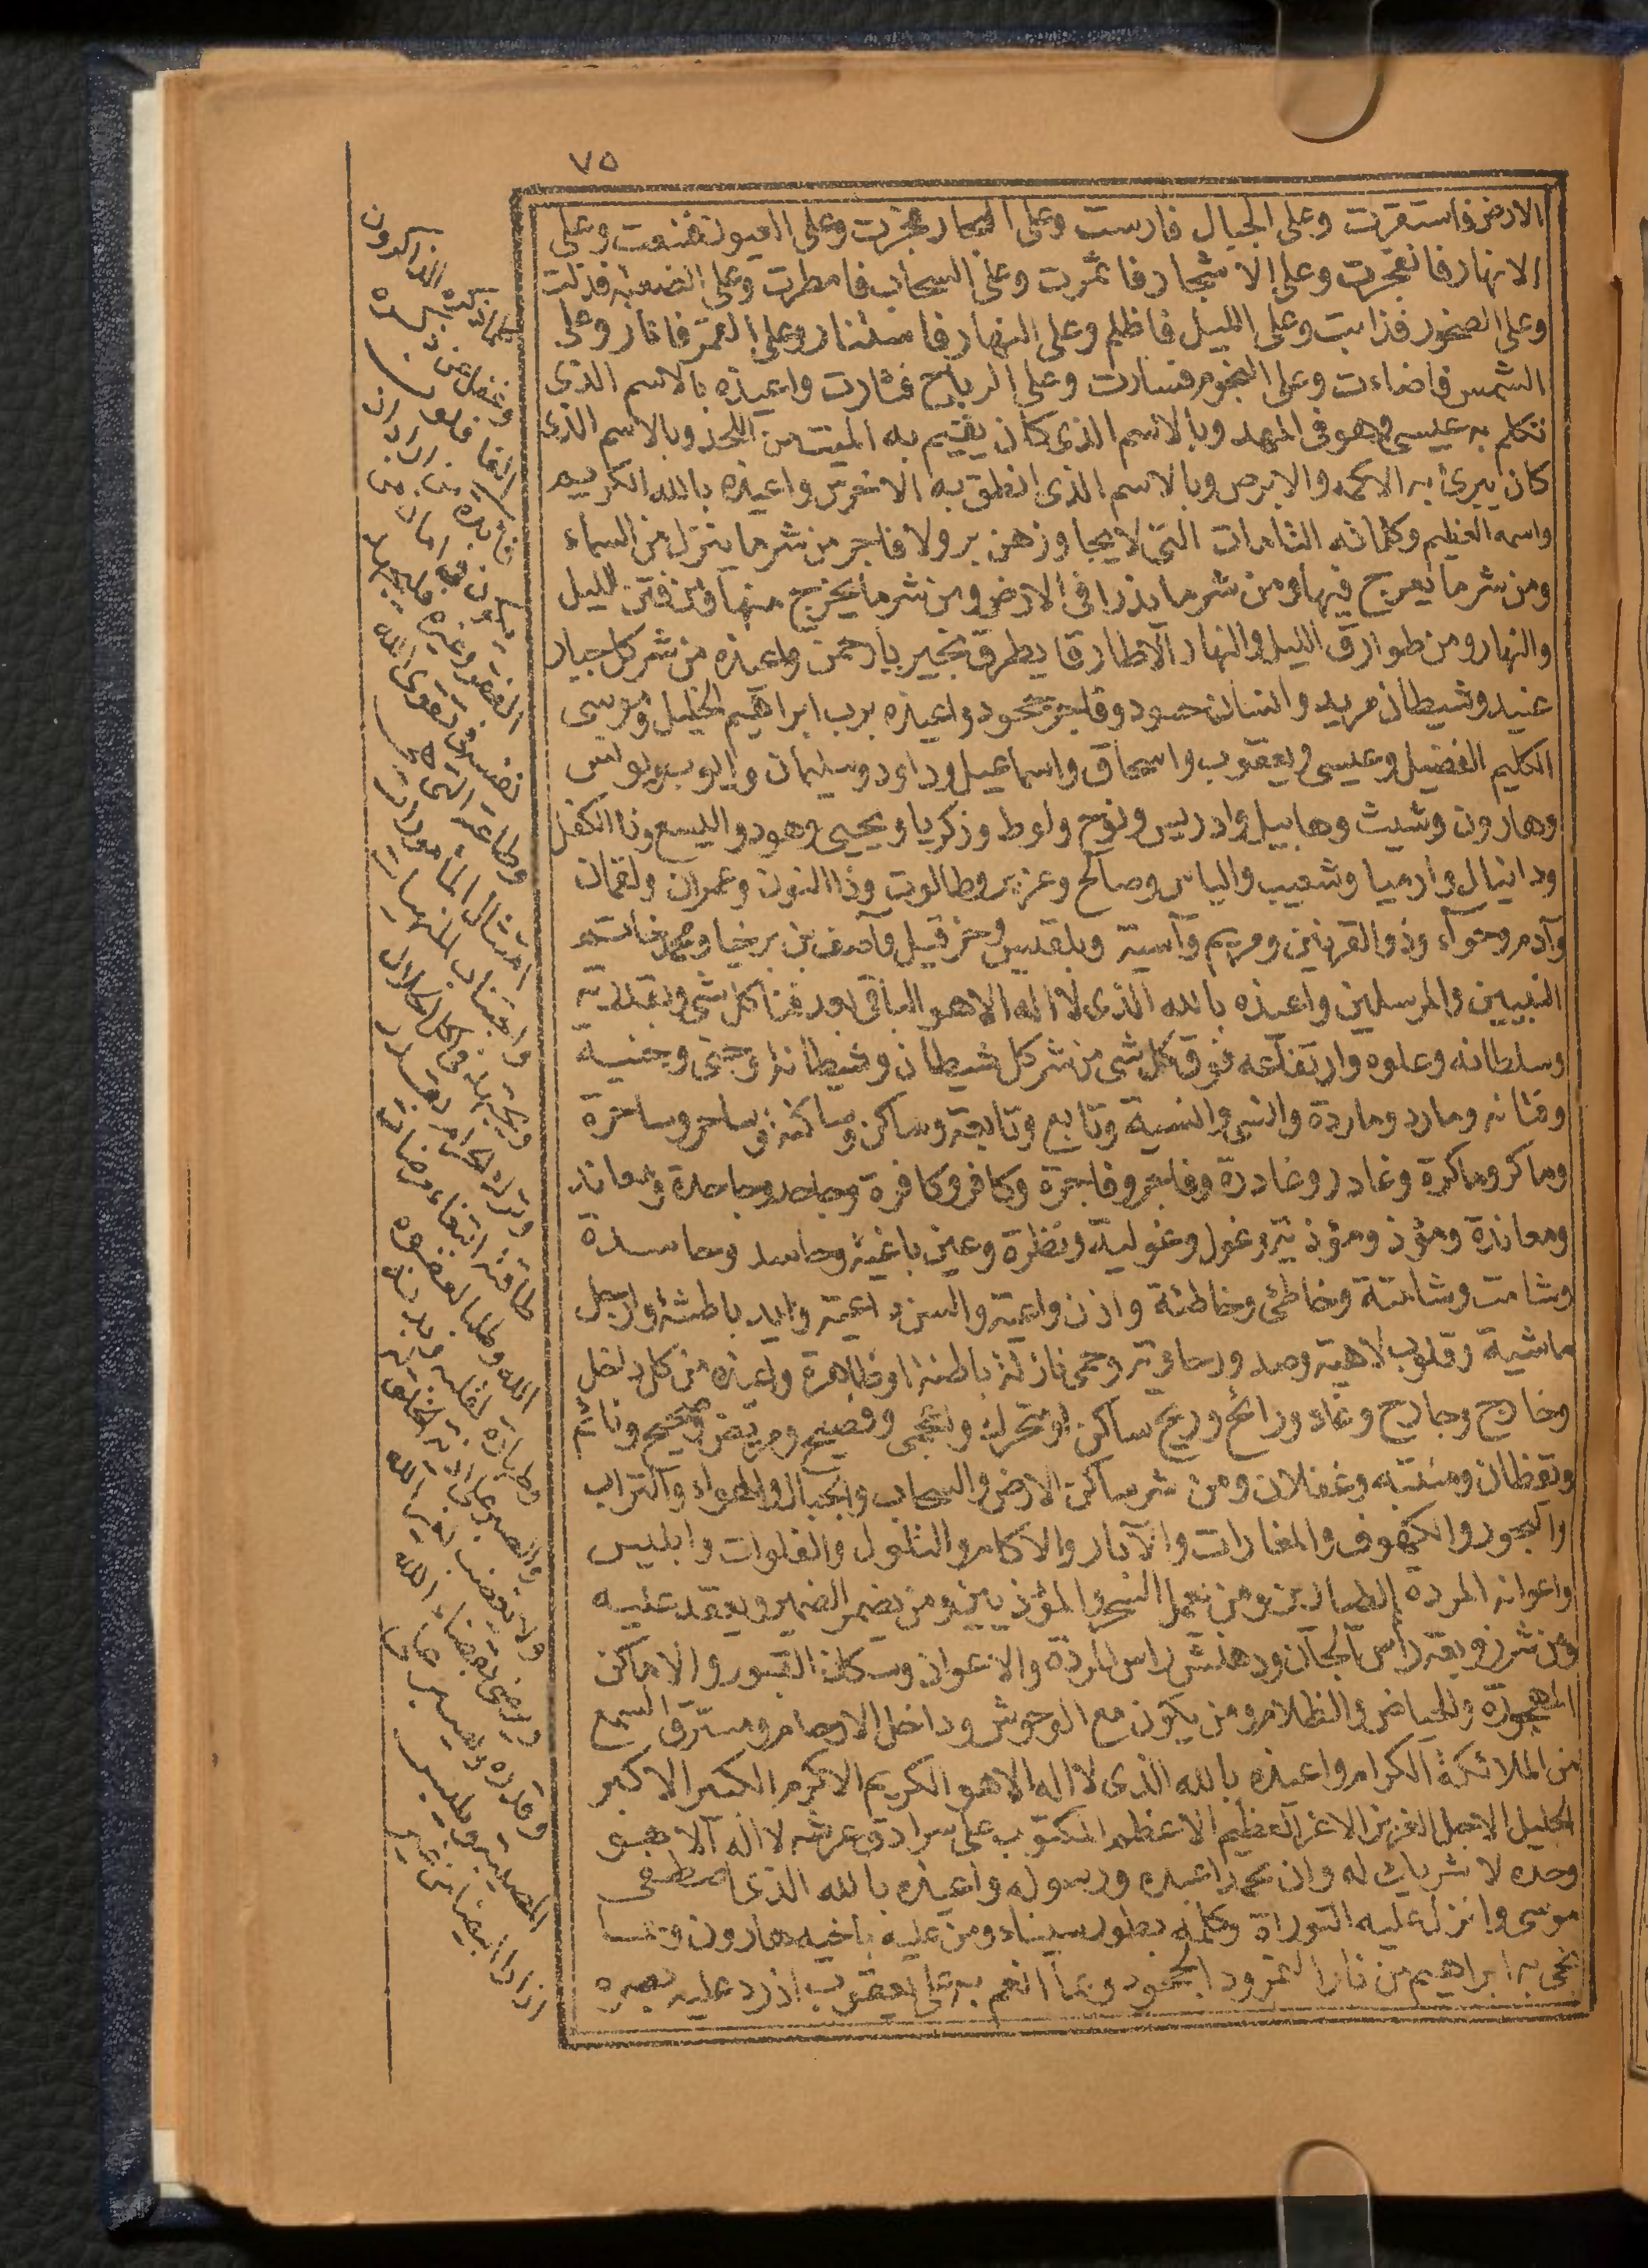 ٧٥
الارض فاستقرت وعلى الجبال فارست وعلى البحار فجرت وعلى العيون فنبعت وعلى
الانهار فانفجرت وعلى الاشجار فاثمرت وعلى السحاب فامطرت وعلى الصعاب فذلت
وعلى الصخور فذابت وعلى الليل فاظلم وعلى النهار فاستنار وعلى القمر فانار وعلى
الشمس فاضاءت وعلى النجوم فسارت وعلى الرياح فثارت واعيذه بالاسم الذى
تكلم به عيسى وهو فى المهد وبالاسم الذى كان يقيم به الميت من اللحد وبالاسم الذى
كان يبرئ به الاكمه والابرص وبالاسم الذى انطق به الاخرس واعيذه بالله الكريم
واسمه العظيم وكلماته التامات التى لا يجاوزهن بر ولا فاجر من شر ما ينزل من السماء
ومن شر ما يعرج فيها ومن شر ما يذرا فى الارض ومن شر ما يخرج منها ومن فتن الليل
والنهار ومن طوارق الليل والنهار الا طارقا يطرق بخير يا رحمن واعيذه من شر كل جبار
عنيد وشيطان مريد وانسان حسود وفاجر جحود واعيذه برب ابراهيم الخليل وموسى
الكليم الفضيل وعيسى ويعقوب واسحاق واسماعيل وداود وسليمان وايوب ويونس
وهارون وشيث وهابيل وادريس ونوح ولوط وزكريا ويحيى وهود واليسع وذا الكفل
ودانيال وارميا وشعيب والياس وصالح وعزير وطالوت وذا النون وعمران ولقمان
وآدم وحوآء وذو القرنين ومريم وآسية وبلقيس وحزقيل وآصف بن برخيا ومحمد خاتم
النبيين والمرسلين واعيذه بالله الذى لا اله الا هو الباقى بعد فنا كل شى وبقدرته
وسلطانه وعلوه وارتفاعه فوق كل شى من شر كل شيطان وشيطانة وجنى وجنية
وفتانه ومارد وماردة وانسى وانسية وتابع وتابعة وساكن وساكنة وساحر وساحرة
وماكر وماكرة وغادر وغادرة وفاجر وفاجرة وكافر وكافرة وجاحد وجاحدة ومعاند
ومعاندة ومؤذ ومؤذية وغول وغولية ونظرة وعين باغية وحاسد وحاسدة
وشامت وشامتة وخاطئ وخاطئة واذن واعية والسن واعية وايد باطشة وارجل
ماشية وقلوب لاهية وصدور خاوية وحمى نازلة باطنة او ظاهرة واعيذه من كل داخل
وخارج وجارح وغاد ورائح وريح ساكن او متحرك واعجمى وفصيح ومريض وصحيح ونائم
ويقظان ومنتبه وغفلان ومن شر ساكن الارض والسحاب والجبال والهواء والتراب
والبحور والكهوف والمغارات والآبار والاكام والتلول والفلوات وابليس
واعوانه المردة الطيارين ومن يعمل السحر والمؤذيين ومن يضمر الضمير ويعقد عليه
ومن شر زوبعة رأس الجآن ودهنش راس المردة والاعوان وسكان القبور والاماكن
المهجورة والحياض والظلام ومن يكون مع الوحوش وداخل الارحام ومسترق السمع
من الملائكة الكرام واعيذه بالله الذى لا اله الا هو الكريم الاكرم الكبير الاكبر
الجليل الاجل العزيز الاعز العظيم الاعظم المكتوب على سرادق عرشه لا اله الا هو
وحده لا شريك له وان محمدا عبده ورسوله واعيذه بالله الذى اصطفى
موسى وانزل عليه التوراة وكلمه بطور سيناء ومن عليه باخيه هارون وبما
نجى به ابراهيم من نار النمرود الجحود وبما انعم به على يعقوب اذ رد عليه بصره
كلما ذكره الذاكرون
وغفل عن ذكره
الغافلون
فائدة من اراد ان
يكون فى امان من
الفقر وغيره فليجهد
نفسه فى تقوى الله
وطاعته التى هى
امتثال المأمورات
واجتناب المنهيات
ويجتهد فى اكل الحلال
وترك الحرام بقدر
طاقته ابتغاء مرضات
الله وطلبا لمغفرته
وطهارة لقلبه وبدنه
والصبر على اذية الخلق
ولا يغضب لغير الله
ويرضى بقضاء الله
وقدره